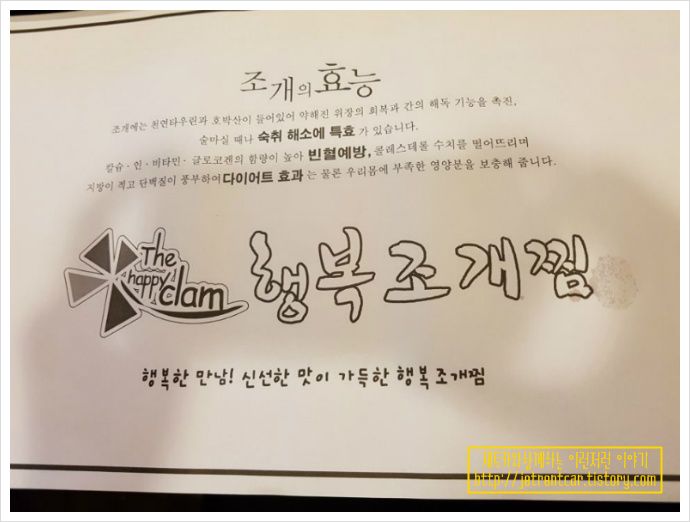 조개의효능
조개에는 천연타우린과 호박산이 들어있어 약해진 위장의 회복과 간의 해독 기능을 촉진,
술마실 때나 숙취 해소에 특효가 있습니다.
칼슘·인·비타민·글로코겐의 함량이 높아 빈혈예방, 콜레스테롤 수치를 떨어뜨리며
지방이 적고 단백질이 풍부하여 다이어트 효과는 물론 우리몸에 부족한 영양분을 보충해 줍니다.
The happy clam
행복조개찜
행복한 만남! 신선한 맛이 가득한 행복 조개찜
이런저런 이야기
http://jotrentcar.tistory.com